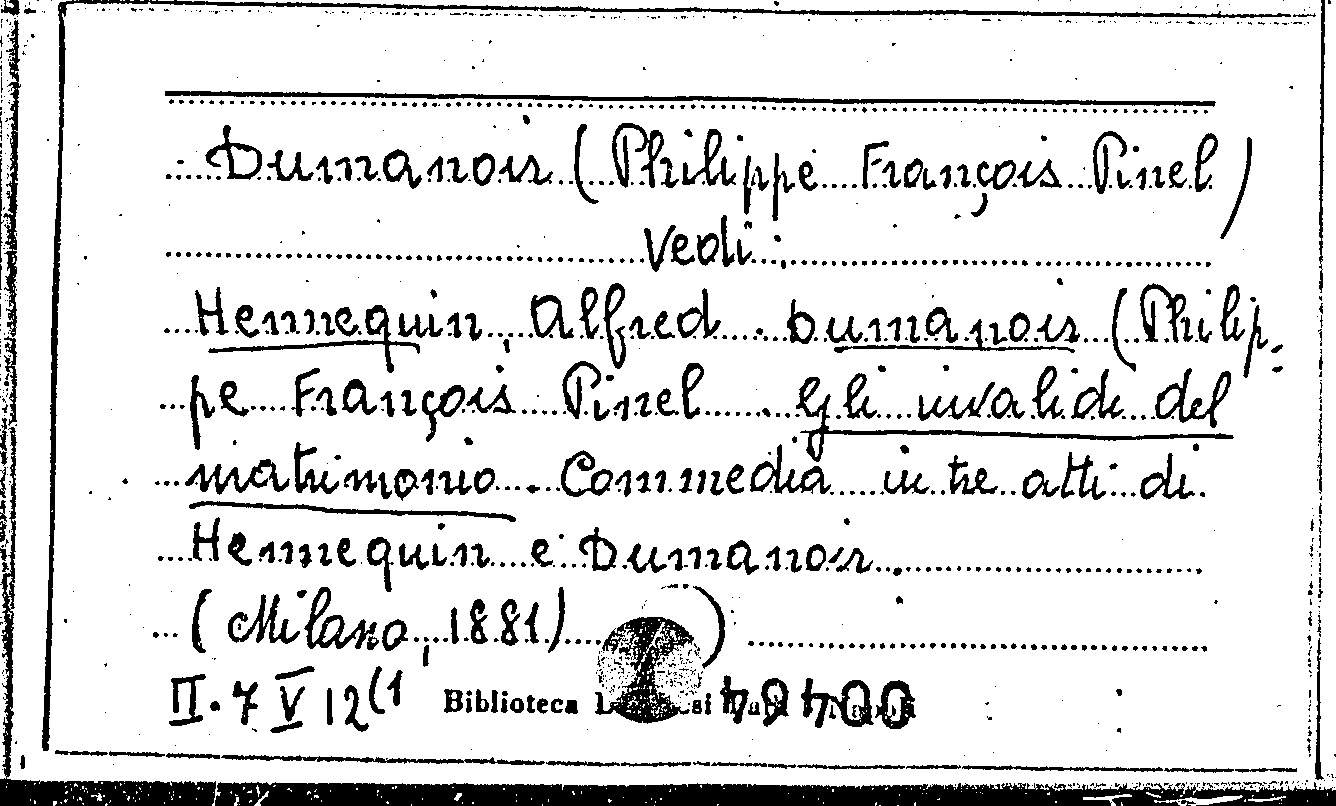 Dumanoir (Philippe François Pinel)
Vedi:
Hennequin, Alfred. Dumanoir (Philip-
pe François Pinel. Gli invalidi del
matrimonio. Commedia in tre atti di
Hennequin e Dumanoir.
(Milano, 1881)
II. 7 V 12(1 Biblioteca